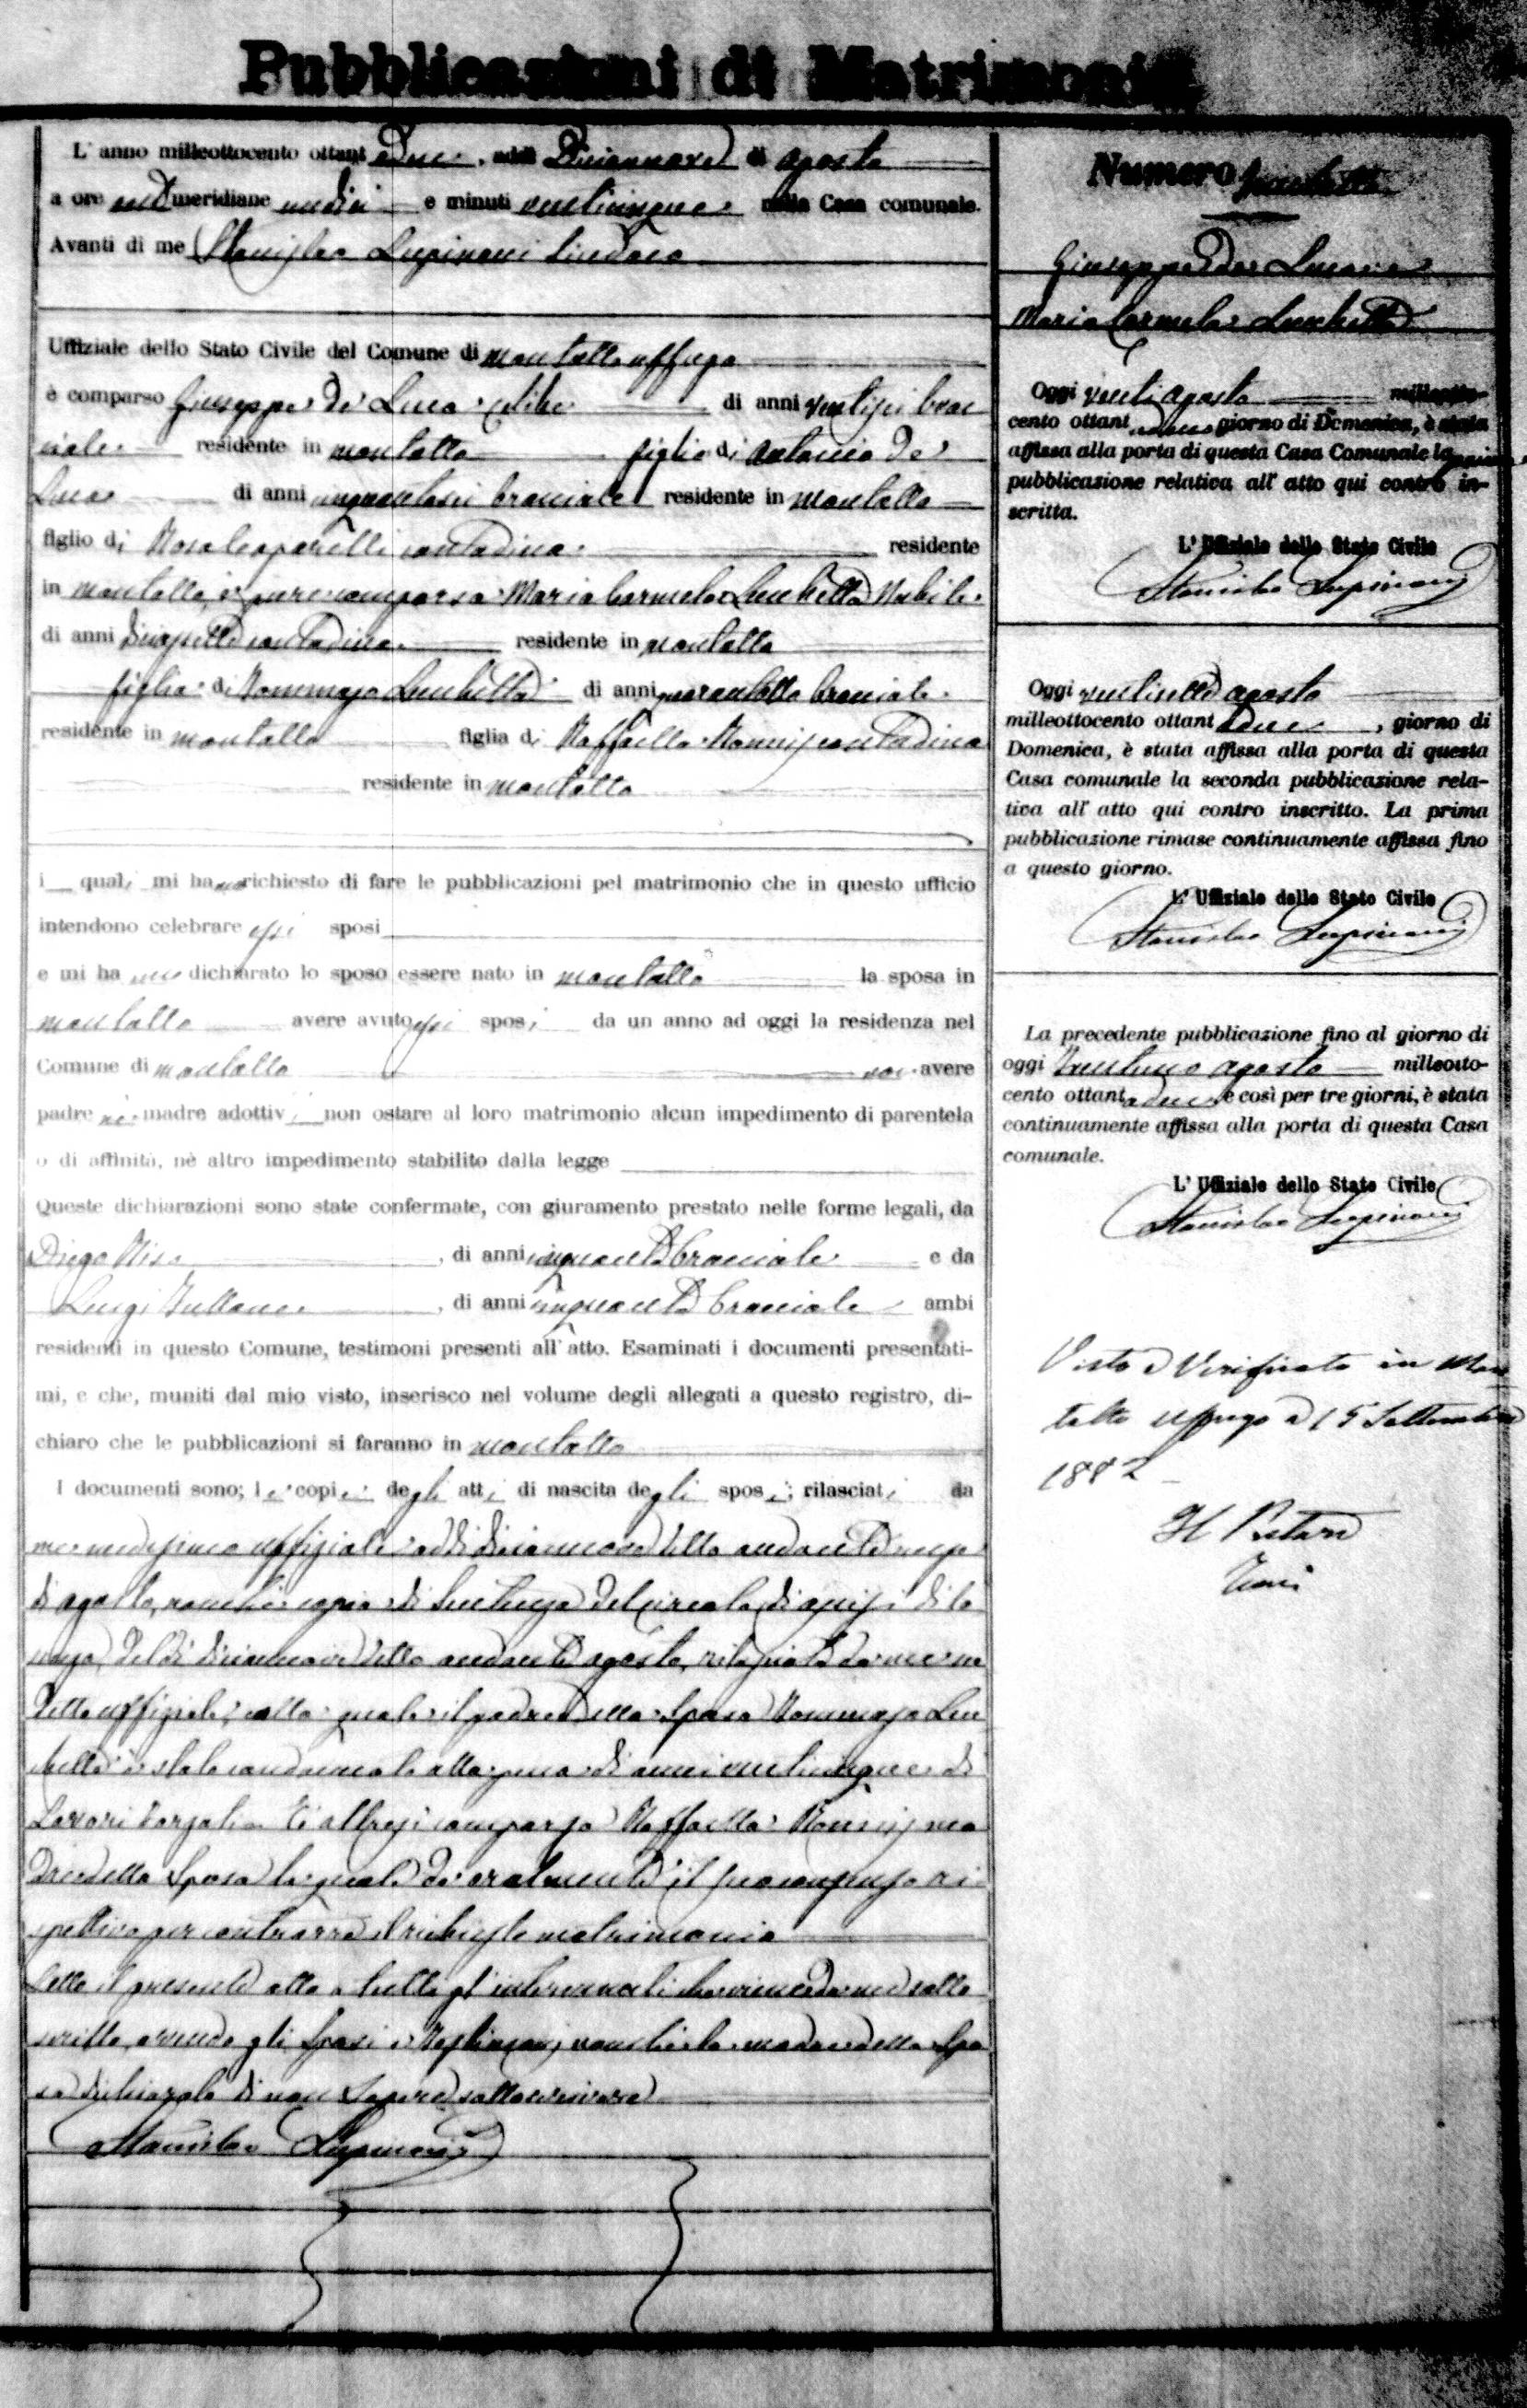 Pubblicazioni di Matrimonio
L'anno milleottocento ottantadue, addì Diciannove di agosto
a ore antimeridiane undici e minuti venticinque nella Casa comunale.
Avanti di me Stanislao Lupinacci Sindaco
Uffiziale dello Stato Civile del Comune di montalto uffugo
è comparso Giuseppe De Luca celibe di anni ventisei brac
ciale residente in montalto figlio di Antonio De
Luca di anni cinquantasei bracciale residente in montalto
figlio di Rosa contadina residente
in montalto, è pure comparsa Maria Carmela Lucchetta Nubile
di anni diciasette contadina residente in montalto
figlia di Tommaso Lucchetta di anni quarantotto bracciale
residente in montalto figlia di Raffaella contadina
residente in montalto
i quali mi hanno richiesto di fare le pubblicazioni pel matrimonio che in questo ufficio
intendono celebrare essi sposi
e mi hanno dichiarato lo sposo essere nato in montalto la sposa in
montalto avere avuto essi sposi da un anno ad oggi la residenza nel
Comune di montalto non avere
padre nè madre adottivi non ostare al loro matrimonio alcun impedimento di parentela
o di affinità, nè altro impedimento stabilito dalla legge
Queste dichiarazioni sono state confermate, con giuramento prestato nelle forme legali, da
Diego , di anni cinquanta bracciale e da
Luigi , di anni cinquanta bracciale ambi
residenti in questo Comune, testimoni presenti all'atto. Esaminati i documenti presentati-
mi, e che, muniti dal mio visto, inserisco nel volume degli allegati a questo registro, di-
chiaro che le pubblicazioni si faranno in montalto
I documenti sono; le copie degli atti di nascita degli sposi; rilasciati da
me medesimo uffiziale addì diciannove dello andante mese
di agosto, nonché copia di Sentenza del circolo di assisi di Co
senza, del dì diciannove dello andante agosto, rilasciata da me su
detto uffiziale, colla quale il padre della Sposa Tommaso Luc
chetta è stato condannato alla pena di anni venticinque di
Lavori forzati. È altresì comparsa Raffaella ma
dre della Sposa la quale dà oralmente il suo consenso ri
spettivo per contrarre il richiesto matrimonio
Letto il presente atto a tutti gl'intervenuti da me sotto
scritto, avendo gli Sposi e Testimoni, nonché la madre della Spo
sa dichiarato di non Sapere sottoscrivere
Stanislao Lupinacci
Numero
Giuseppe De Luca e
Maria Carmela Lucchetta
Oggi venti agosto milleotto-
cento ottantadue giorno di Domenica, è stata
affissa alla porta di questa Casa Comunale la prima
pubblicazione relativa all'atto qui contro in-
scritta.
L'Uffiziale dello Stato Civile
Stanislao Lupinacci
Oggi ventisette agosto
milleottocento ottantadue, giorno di
Domenica, è stata affissa alla porta di questa
Casa comunale la seconda pubblicazione rela-
tiva all'atto qui contro inscritto. La prima
pubblicazione rimase continuamente affissa fino
a questo giorno.
L'Uffiziale dello Stato Civile
Stanislao Lupinacci
La precedente pubblicazione fino al giorno di
oggi trentuno agosto milleotto-
cento ottantadue e così per tre giorni, è stata
continuamente affissa alla porta di questa Casa
comunale.
L'Uffiziale dello Stato Civile
Stanislao Lupinacci
Visto e Verificato in Mon
talto Uffugo a 15 Settembre
1882
Il Pretore